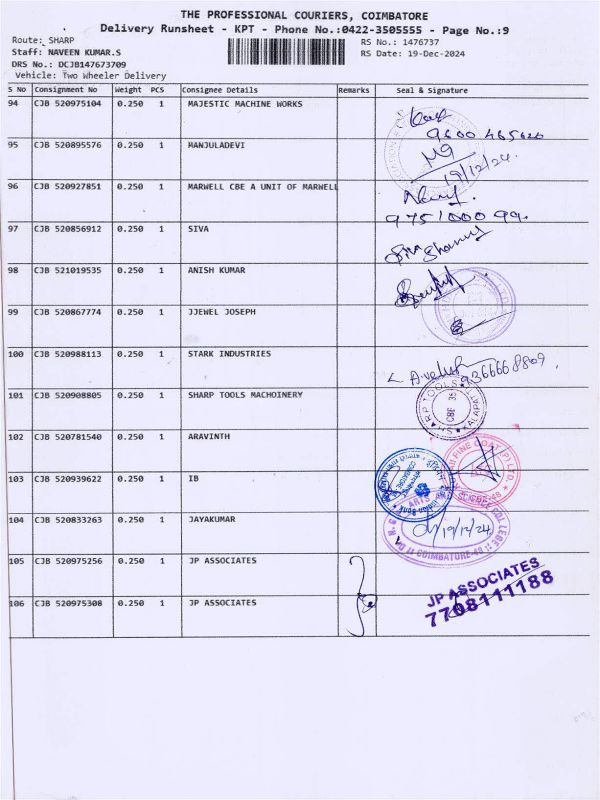 THE PROFESSIONAL COURIERS, COIMBATORE
Delivery Runsheet - KPT - Phone No.:0422-3505555 - Page No.:9
Route: SHARP
RS No.: 1476737
Staff: NAVEEN KUMAR.S
RS Date: 19-Dec-2024
DRS No.: DCJB147673709
Vehicle: Two Wheeler Delivery
S No Consignment No Weight PCS Consignee Details Remarks Seal & Signature
94 CJB 520975104 0.250 1 MAJESTIC MACHINE WORKS
9600 465620
95 CJB 520895576 0.250 1 MANJULADEVI
19/12/24.
96 CJB 520927851 0.250 1 MARWELL CBE A UNIT OF MARWELL
9751000 99.
97 CJB 520856912 0.250 1 SIVA
98 CJB 521019535 0.250 1 ANISH KUMAR
99 CJB 520867774 0.250 1 JJEWEL JOSEPH
100 CJB 520988113 0.250 1 STARK INDUSTRIES
9366668809.
101 CJB 520908805 0.250 1 SHARP TOOLS MACHOINERY
SHARP TOOLS KALAPATTI
CBE 35
102 CJB 520781540 0.250 1 ARAVINTH
103 CJB 520939622 0.250 1 IB
104 CJB 520833263 0.250 1 JAYAKUMAR
19/12/24
COIMBATORE-48
105 CJB 520975256 0.250 1 JP ASSOCIATES
JP ASSOCIATES
7708111188
106 CJB 520975308 0.250 1 JP ASSOCIATES